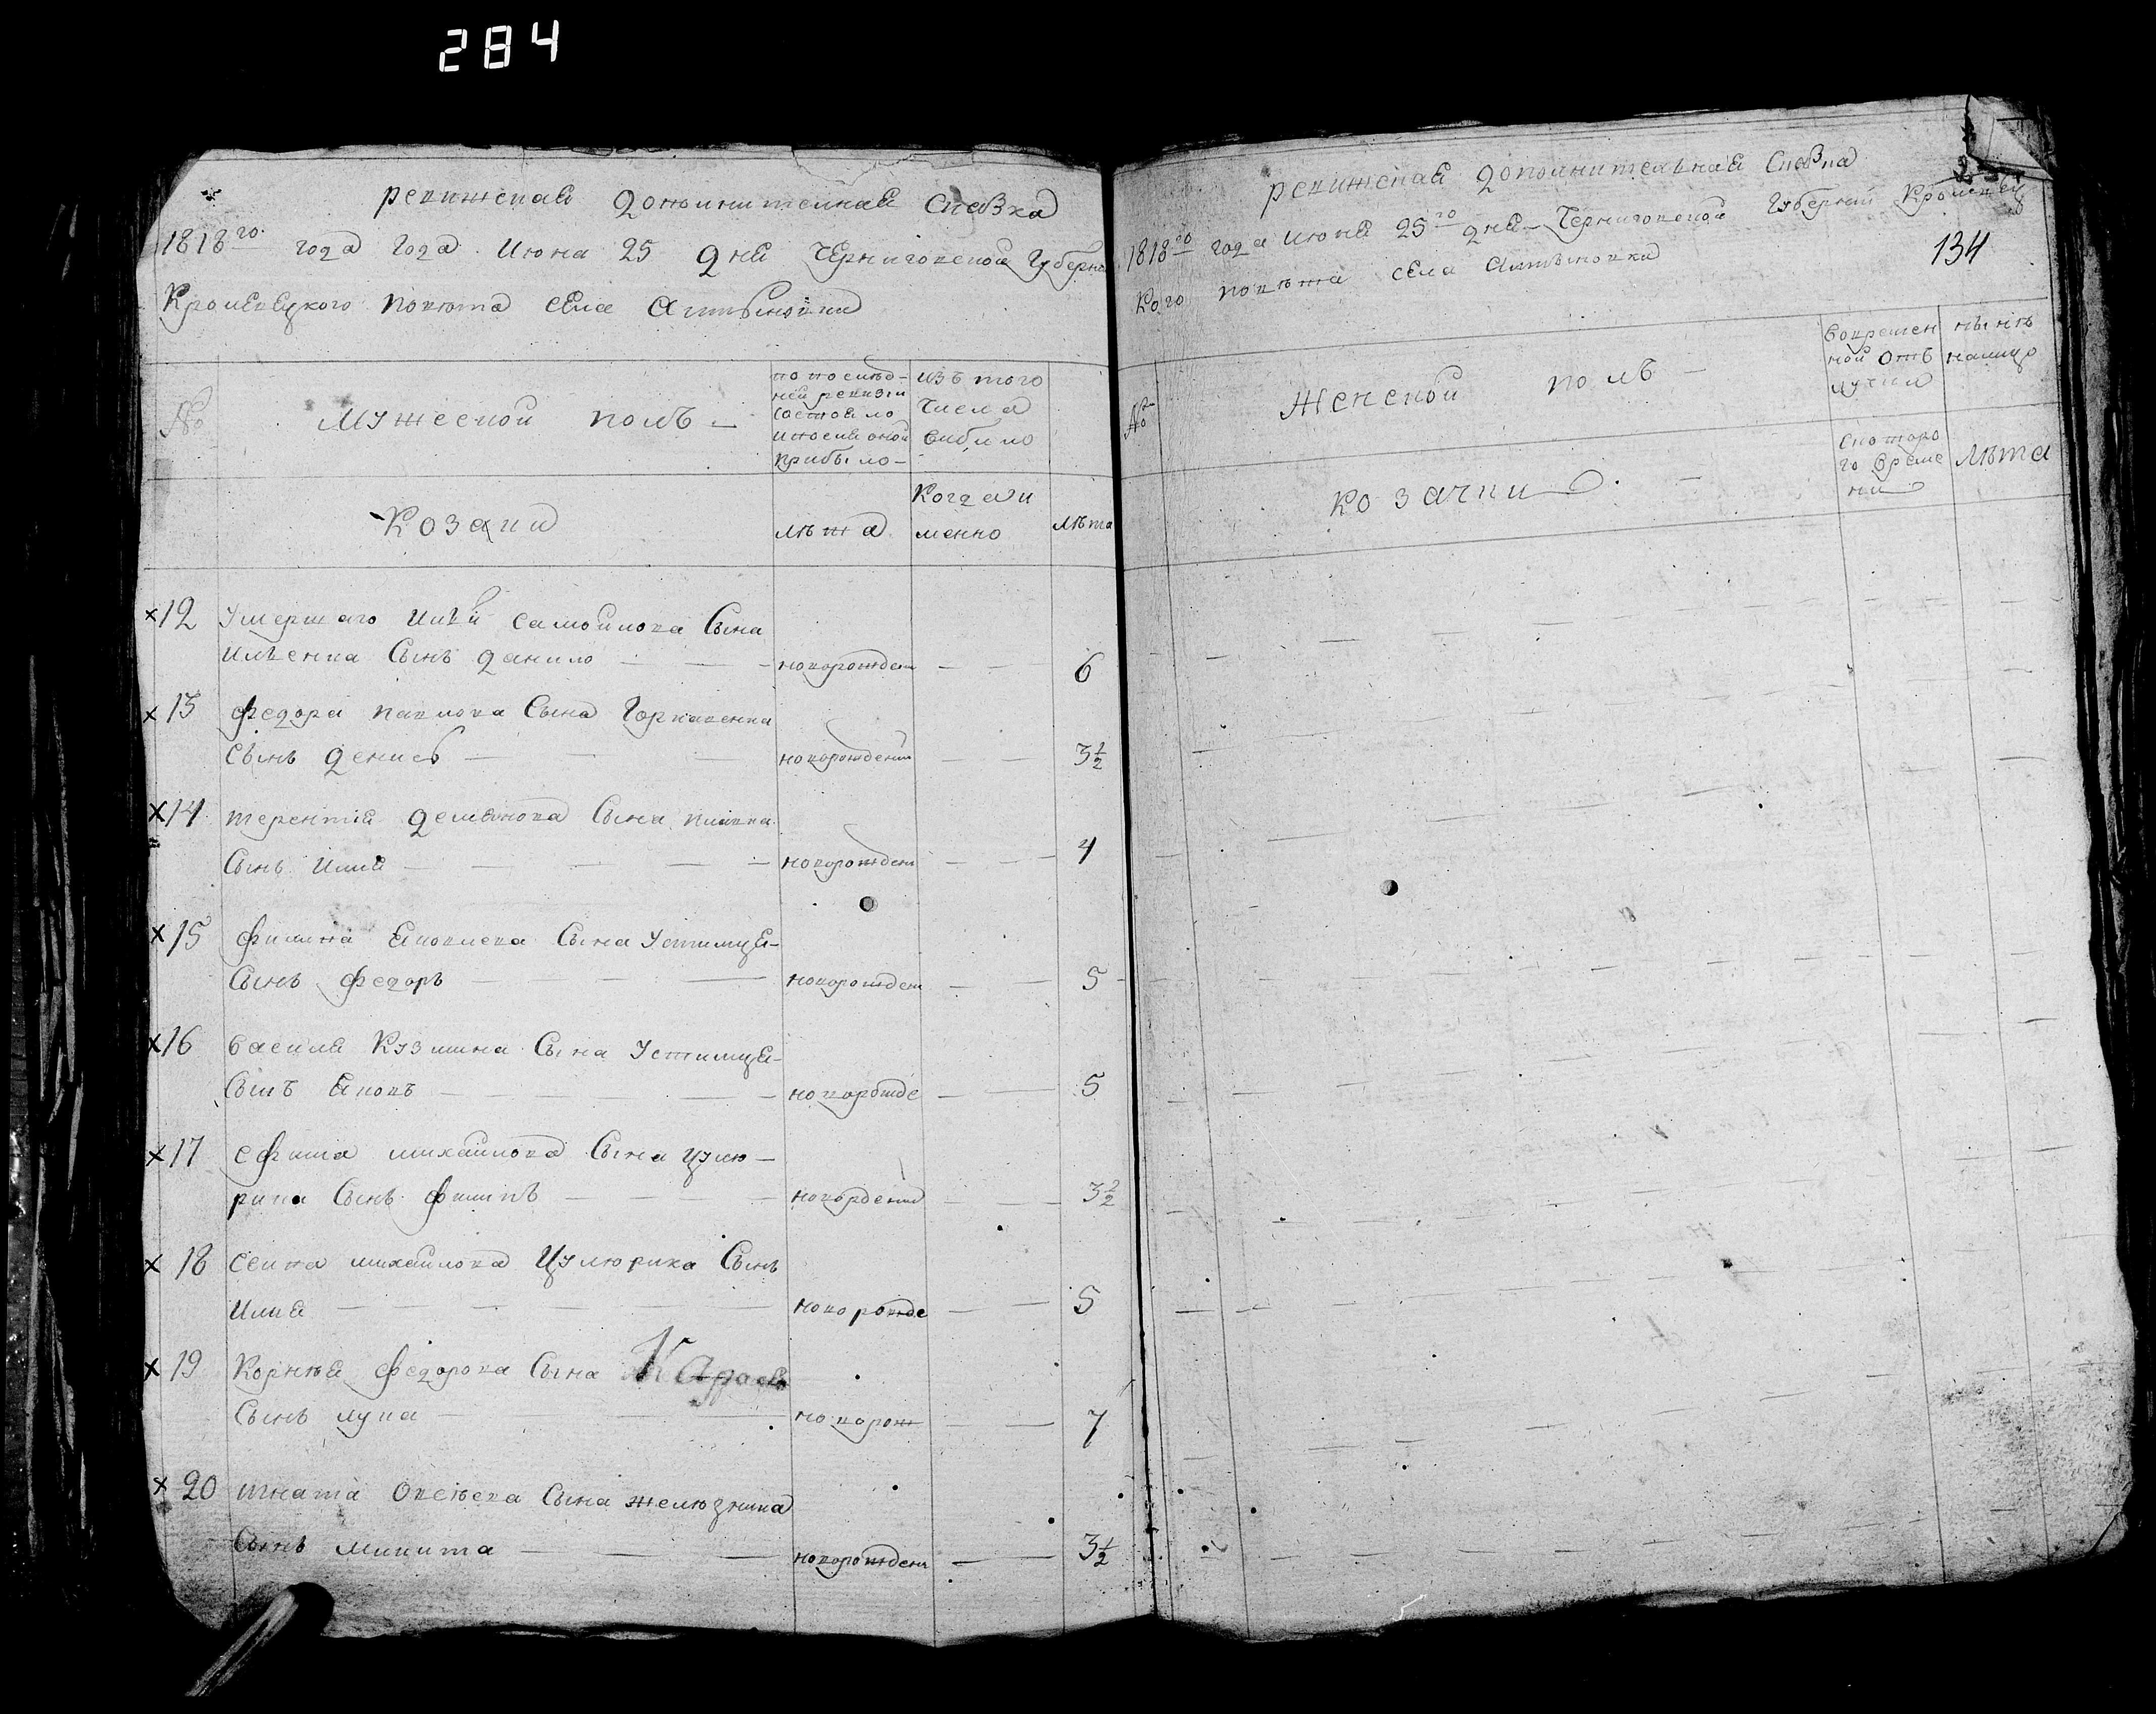 284
ревижская дополнителная сказка
1818го года года Июня 25 дня Черниговской Губерни
Кролевецкого повюта села Алтыновки
№
Мужеской полъ
по послѣд-
ней ревизи
состояло
и после оной
прибыло
изъ того
числа
выбыло
Козаки
лѣта
Когда и
менно
лѣта
12 Умершаго Илѣи самойлова Сына
Илѣенка Сынъ данило новорожден 6
13 федора павлова Сына Горкавенка
Сынъ денисъ новорождений 3½
14 терентия демянова Сына
Сынъ илия новорожден 4
15 филипа яковлева Сына Устимця
Сынъ федоръ новорожден 5
16 василя Кузмина Сына Устимця
Сынъ яковъ новорожде 5
17 ефима михайлова Сына цулю-
рика Сынъ филипъ новордений 3½
18 михайлова Цулюрика Сынъ
илия новорожде 5
19 Корнѣя федорова Сына
Сынъ лука новорож 7
20 игната Сына желюзняка
Сынъ микита новорожден 3½
ревижская дополнителная сказка
1818го года июня 25го дня Черниговской Губернии Кролевец
кого повѣта села Алтыновки
134
№
Женской полъ
вовремен
ной отъ
лучки
нынѣ
налицо
козачки
с котоro
го време
ни
лѣта